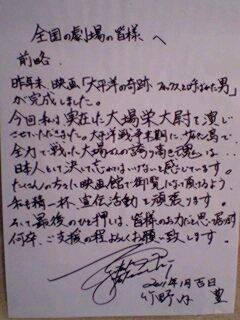 全国の劇場の皆様へ
前略
昨年末、映画「太平洋の奇跡 フォックスと呼ばれた男」
が完成しました。
今回私は実在した大場栄大尉を演じ
させていただきました。太平洋戦争末期に、サイパン島で
全力で戦った大場さんの誇り高き魂は…
日本人として決して忘れてはいけないと感じています。
たくさんの方々に映画館で御覧になって頂けるよう、
私も精一杯、宣伝活動を頑張ります。
そして最後のひと押しは、皆様のお力だと思います
何卒、ご支援の程よろしくお願い致します。
2011年1月吉日
竹野内 豊